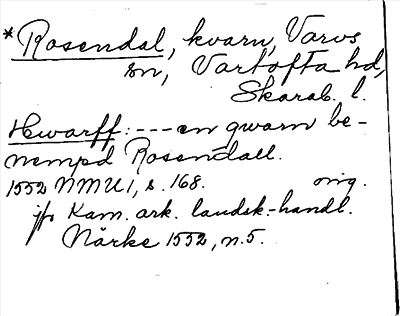 * Rosendal, kvarn, Varvs
sn, Vartofta hd,
Skarab. l.
Hwarff: --- en qwarn be-
nempd Rosendall.
1552 NMU1, s. 168. orig.
jfr Kam. ark. landsk.-handl.
Närke 1552, n. 5.